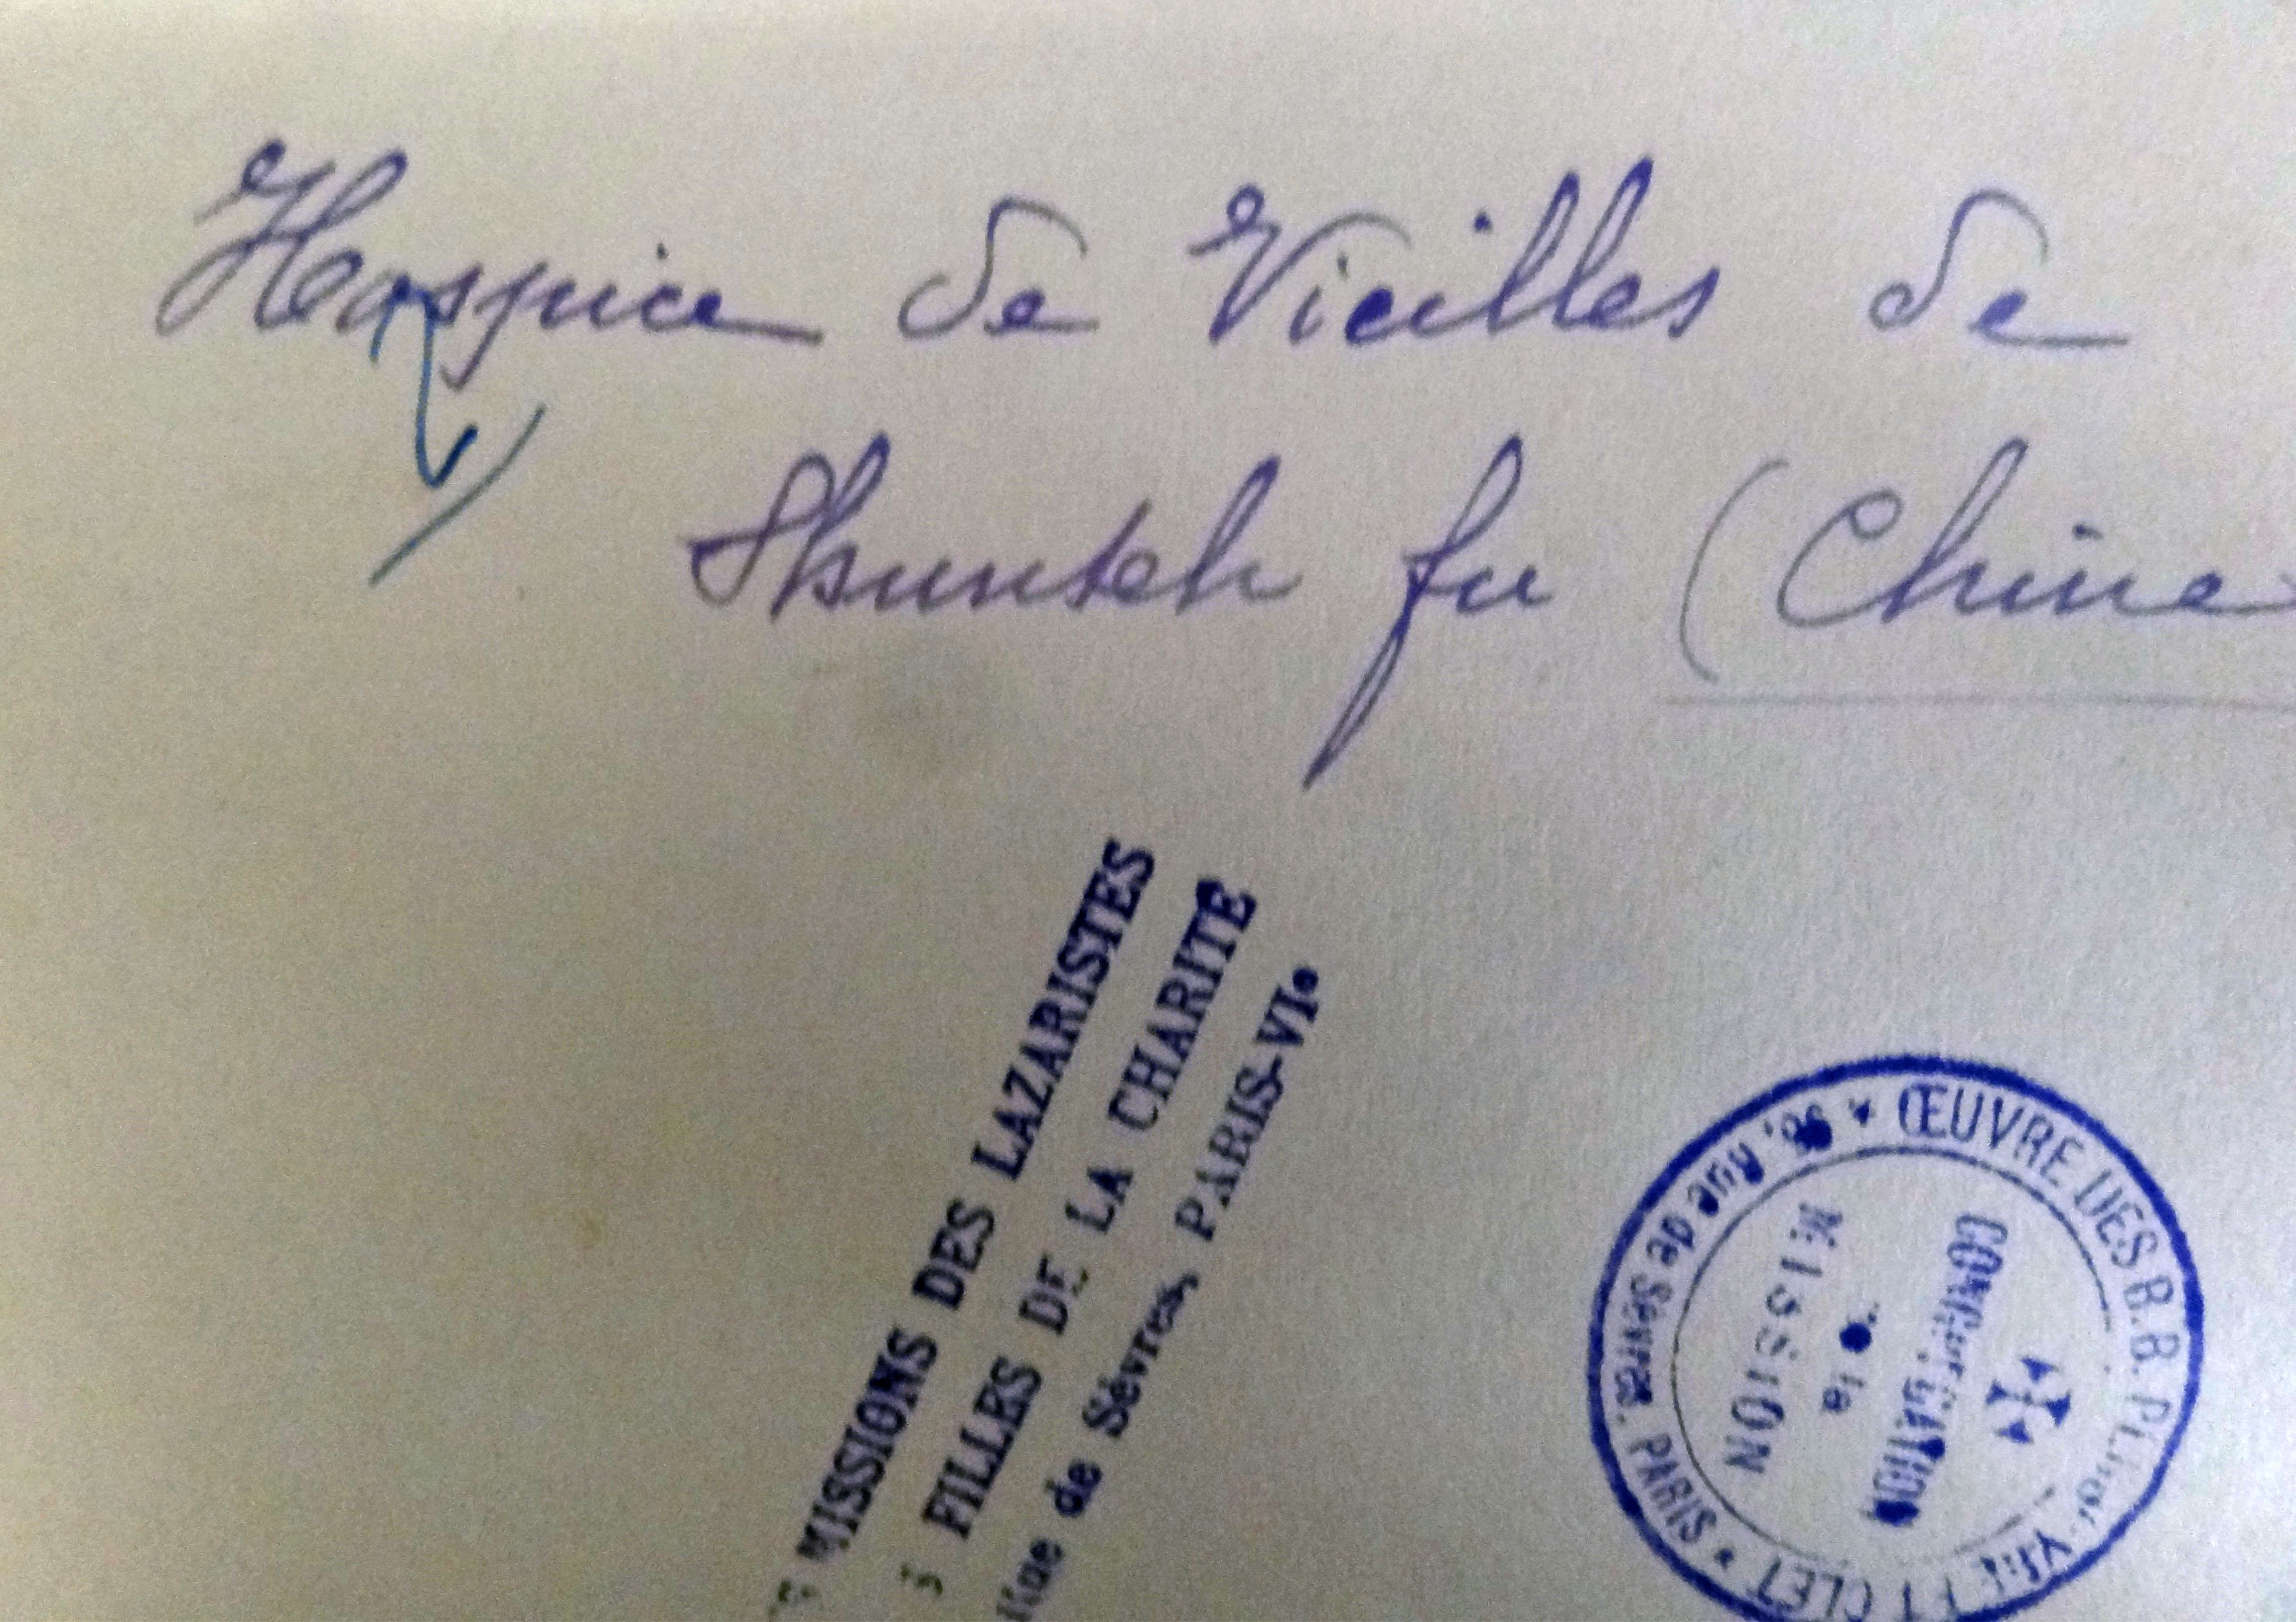 Hospice de Vieilles de
Shunteh fu (Chine
MISSIONS DES LAZARISTES
FILLES DE LA CHARITÉ
de Sèvres, PARIS-VIe
ŒUVRE DES B.B. ET CLET
95, Rue de Sèvres. PARIS
de la
MISSION